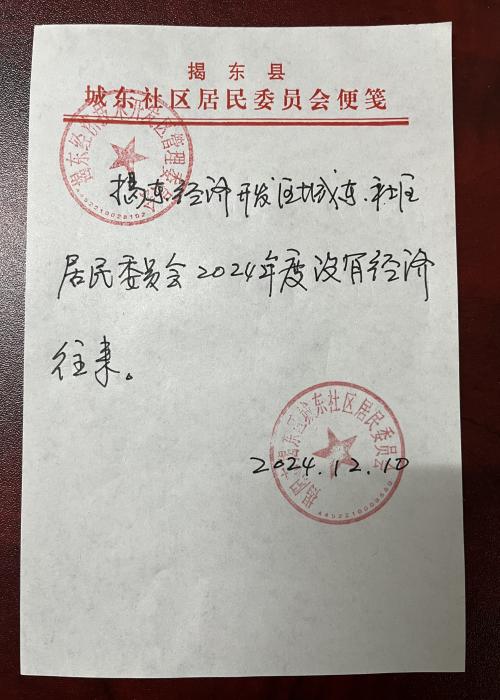 揭东县
城东社区居民委员会便笺
揭东经济开发区城东社区
居民委员会2024年度没有经济
往来。
2024.12.10
揭阳市揭东区城东社区居民委员会